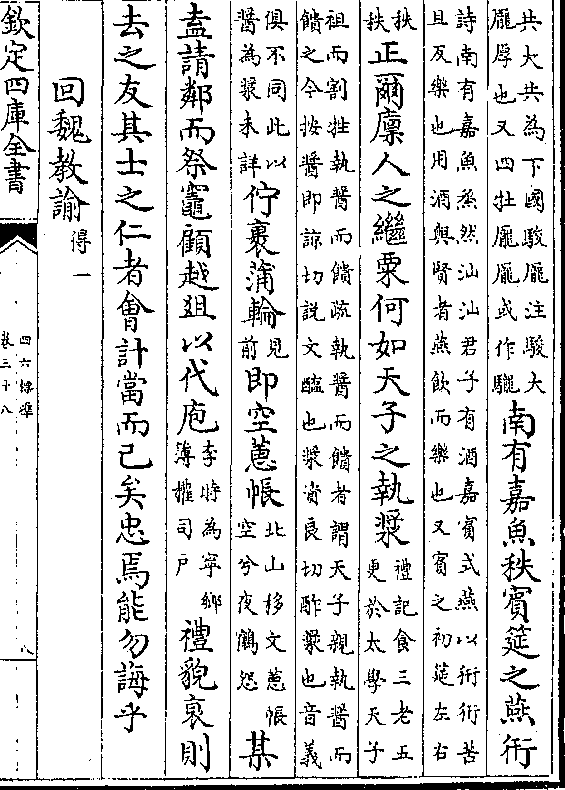 共大共為下國駿龎注駿大
龎厚也又四牡龎龎或作驪
南有嘉魚秩賓筵之燕衎
詩南有嘉魚烝然汕汕君子有酒嘉賓式燕以衎衎苦
且反樂也用酒與賢者燕飲而樂也又賓之初筵左右
秩
秩
正爾廩人之繼粟何如天子之執漿
禮記食三老五
更於太學天子
袒而割牲執醬而饋疏執醬而饋者謂天子親執醬而
饋之今按醬即諒切説文醢也漿資良切酢漿也音義
俱不同此以
醬為漿未詳
佇裹蒲輪
見
前
即空蕙帳
北山移文蕙帳
空兮夜鶴怨
某
盍請鄰而祭竈顧越俎以代庖
李時為寧鄉
簿權司戸
禮貌衰則
去之友其士之仁者會計當而已矣忠焉能勿誨乎
回魏教諭
得一
欽定四庫全書
四六標準
卷三十八
八